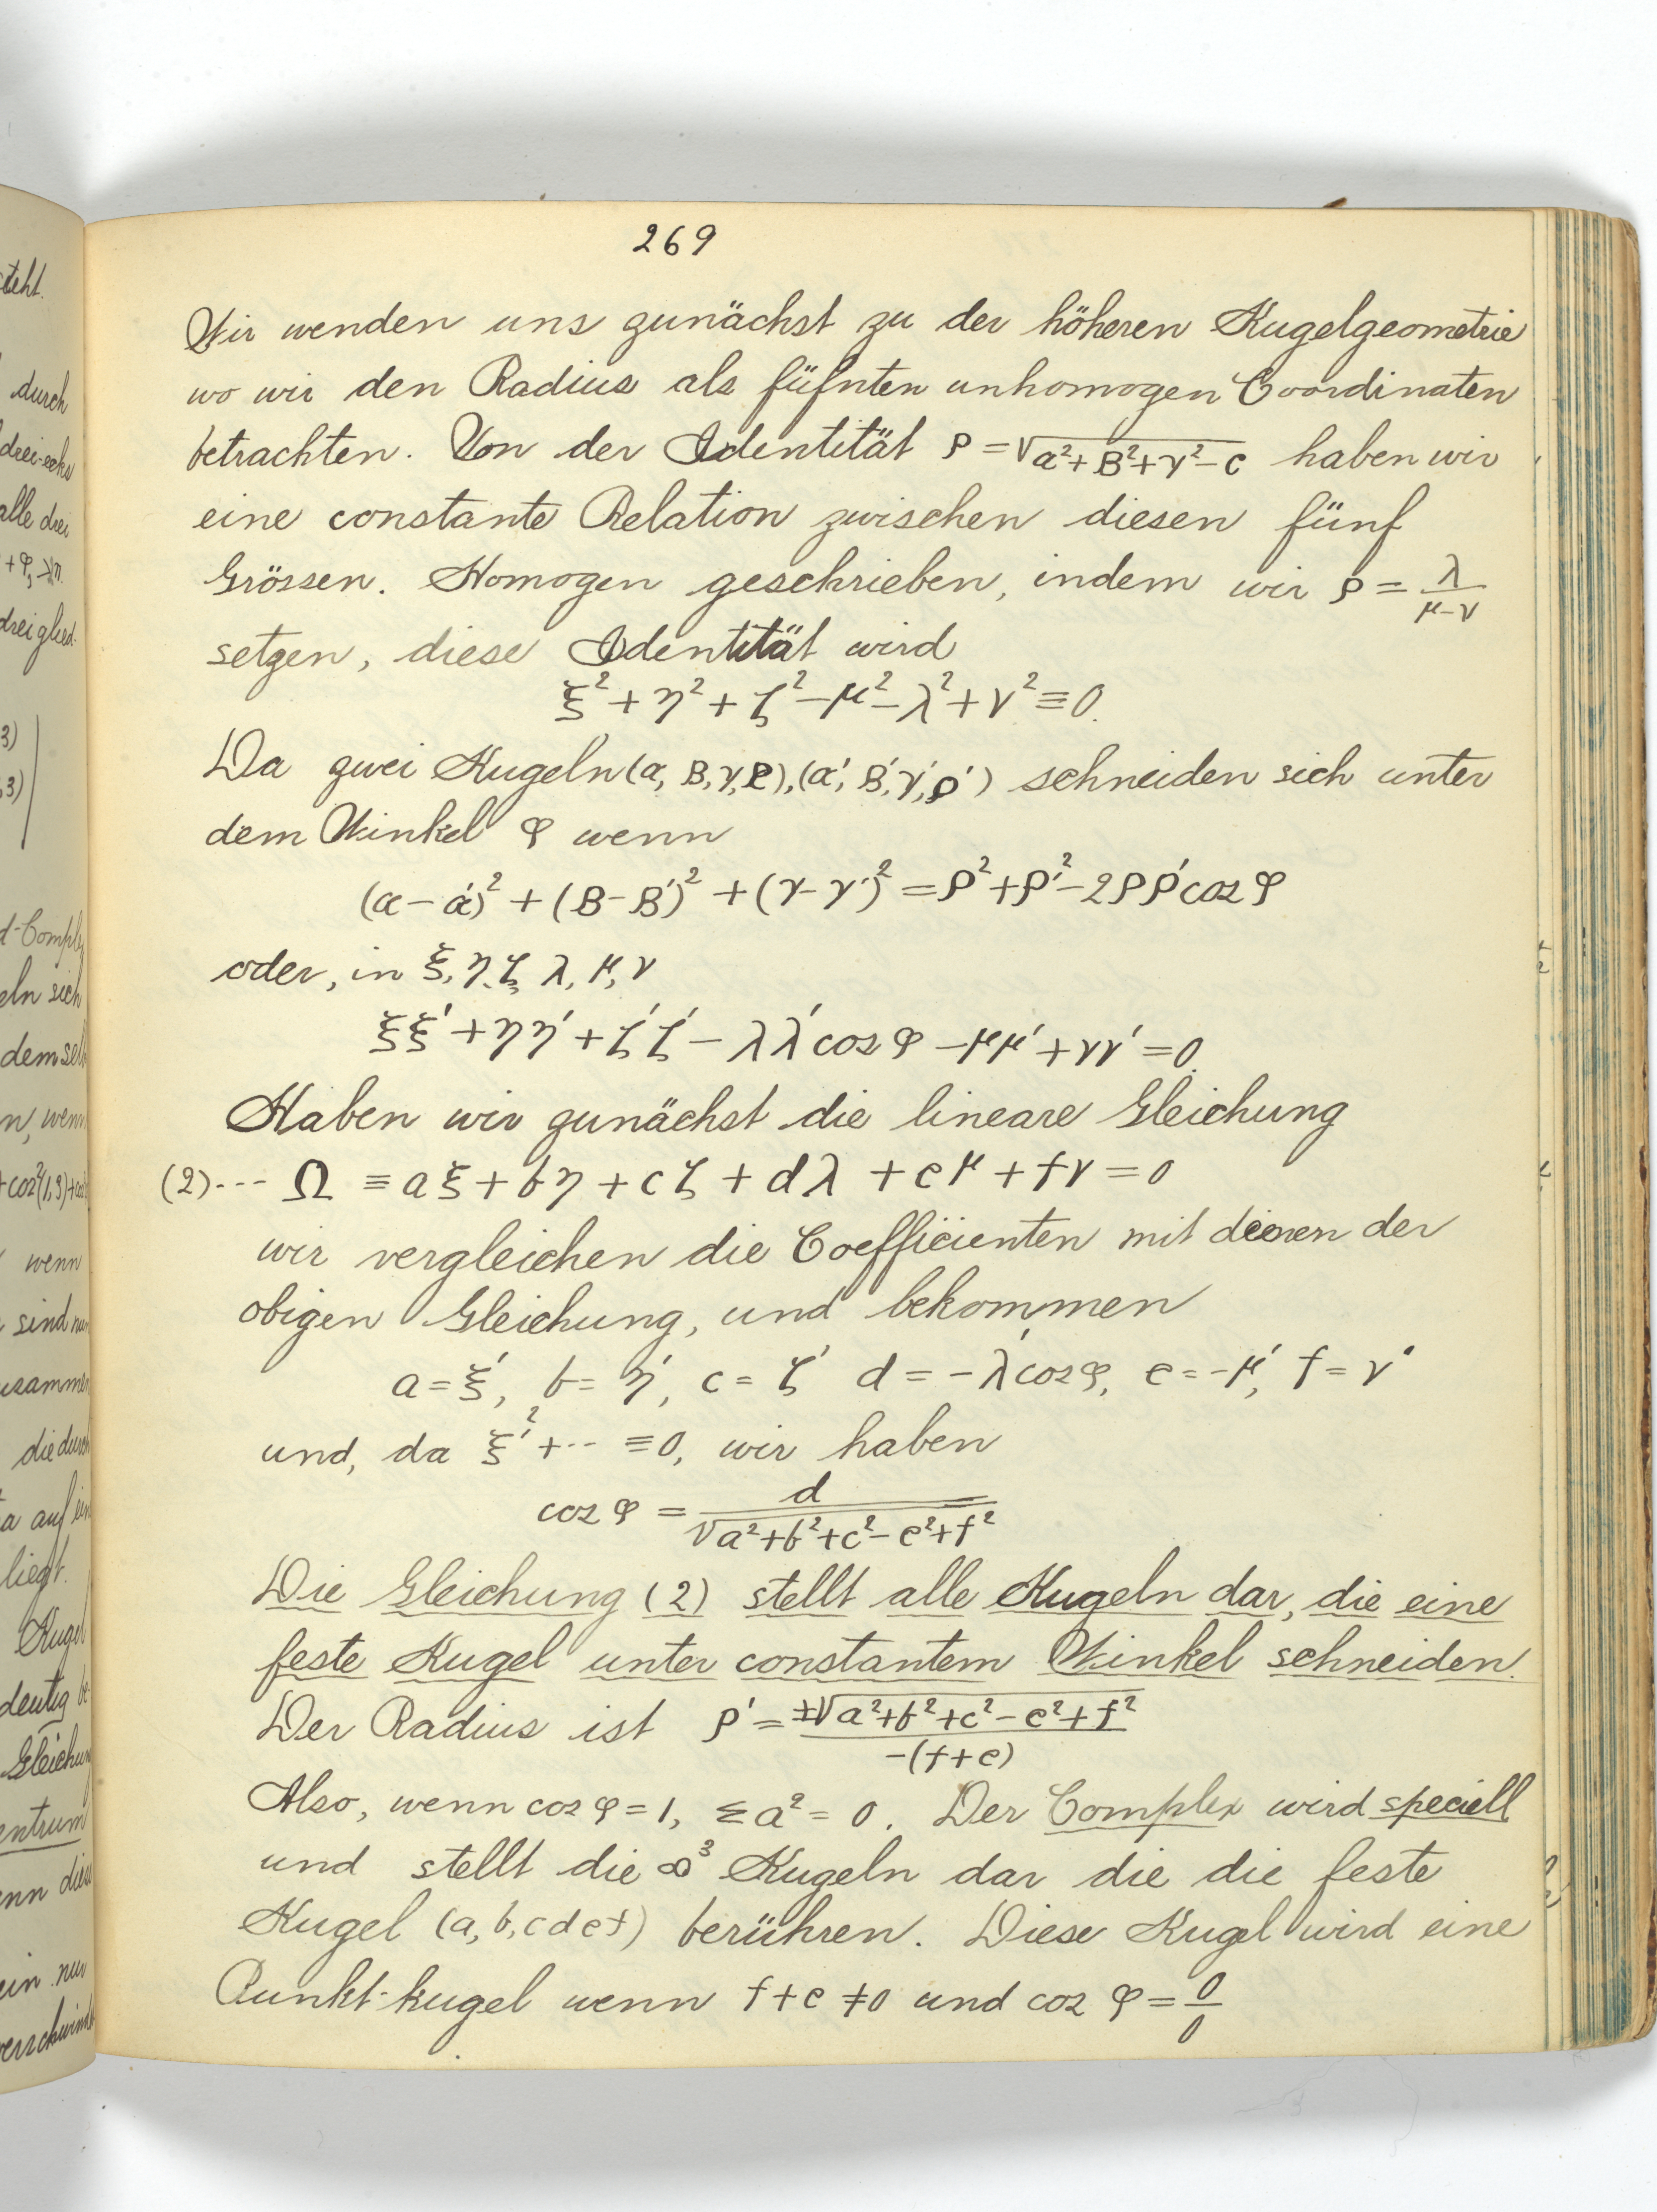 269
Wir wenden uns zunächst zu der höheren Kugelgeometrie
wo wir den Radius als füfnten unhomogen Coordinaten
betrachten. Von der Identität ρ = √(α²+β²+γ²−c) haben wir
eine constante Relation zwischen diesen fünf
Grössen. Homogen geschrieben, indem wir ρ = λ/(μ−ν)
setzen, diese Identität wird
ξ² + η² + ζ² − μ² − λ² + ν² ≡ 0.
Da zwei Kugeln (α, β, γ, ρ), (α', β', γ', ρ') schneiden sich unter
dem Winkel φ wenn
(α − α')² + (β − β')² + (γ − γ')² = ρ² + ρ'² − 2ρρ' cos φ
oder, in ξ, η, ζ, λ, μ, ν
ξξ' + ηη' + ζζ' − λλ' cos φ − μμ' + νν' = 0.
Haben wir zunächst die lineare Gleichung
(2)--- Ω ≡ aξ + bη + cζ + dλ + eμ + fν = 0
wir vergleichen die Coefficienten mit deinen der
obigen Gleichung, und bekommen
a = ξ', b = η', c = ζ' d = −λ' cos φ, e = −μ', f = ν'
und, da ξ'² + ··· ≡ 0, wir haben
cos φ = d/√(a²+b²+c²−e²+f²)
Die Gleichung (2) stellt alle Kugeln dar, die eine
feste Kugel unter constantem Winkel schneiden.
Der Radius ist ρ' = ±√(a²+b²+c²−e²+f²)/−(f+e)
Also, wenn cos φ = 1, Σa² = 0. Der Complex wird speciell
und stellt die ∞³ Kugeln dar die die feste
Kugel (a, b, c d e f) berühren. Diese Kugel wird eine
Punkt-kugel wenn f + e ≠ 0 und cos φ = 0/0